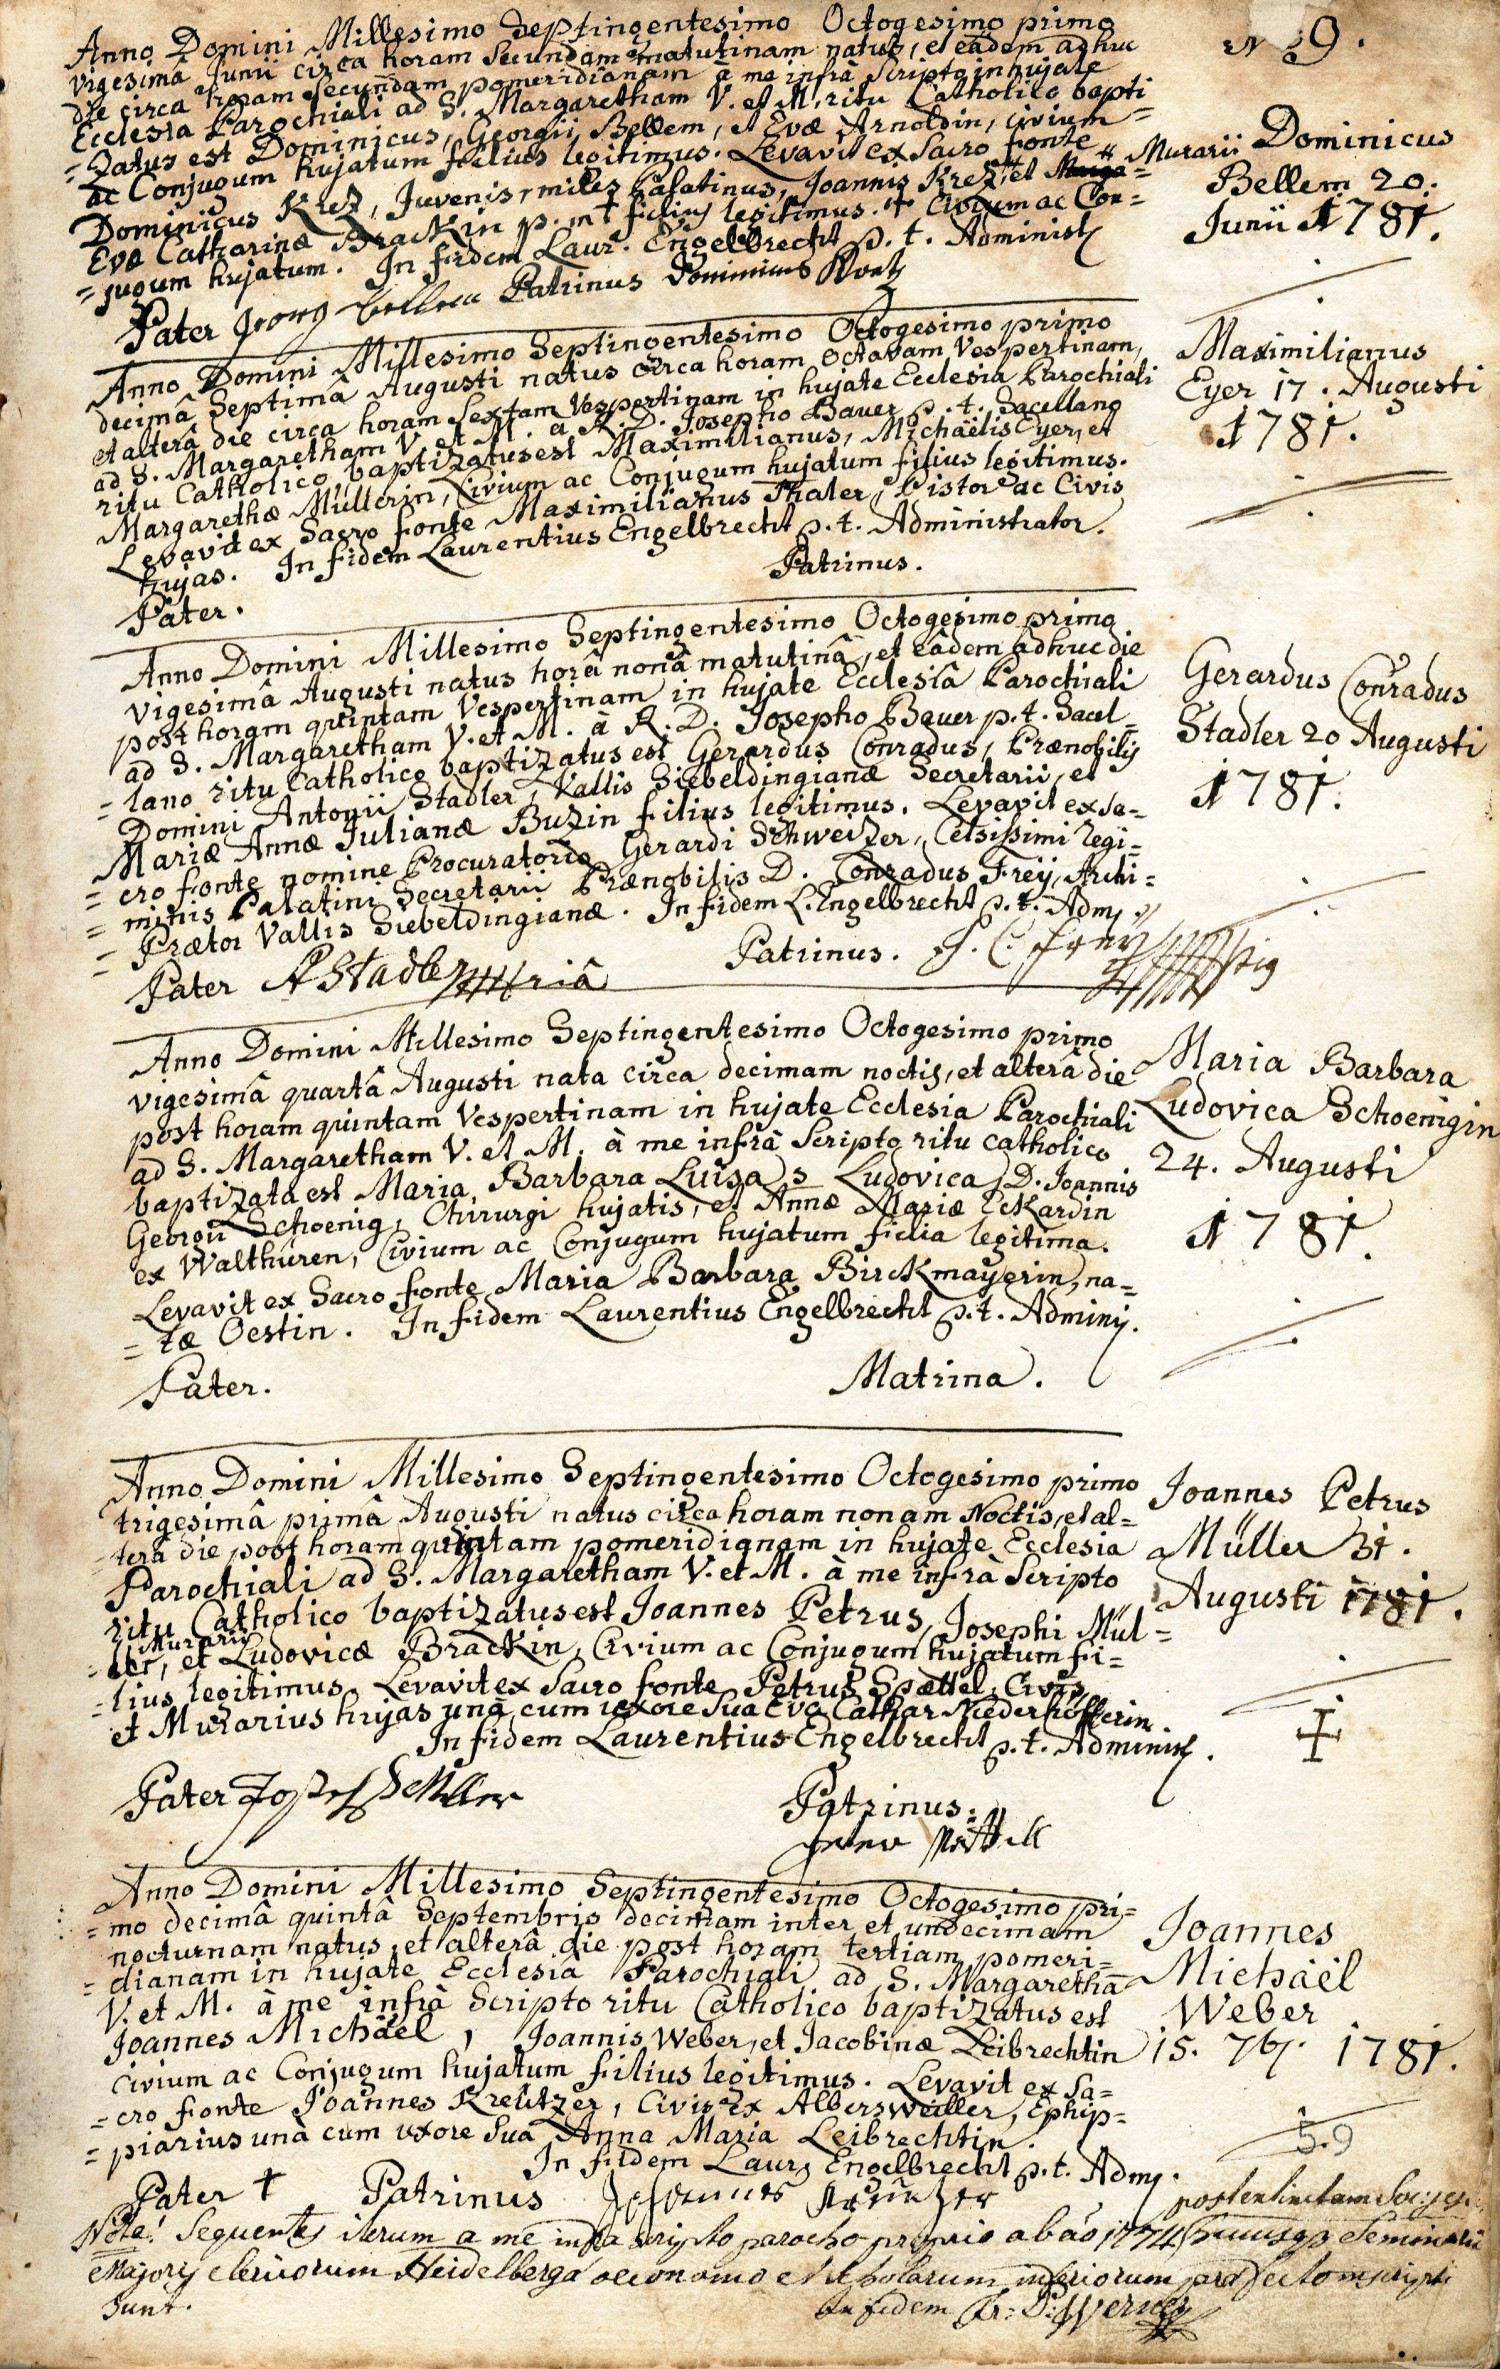 N 9.
Anno Domini Millesimo Septingentesimo Octogesimo primo
vigesimâ Junii circa horam Secundam matutinam natus, et eâdem adhuc
die circa horam Secundam pomeridianam à me infrà Scripto in hujate
Ecclesia Parochiali ad S. Margaretham V. et M. ritu Catholico bapti
=zatus est Dominicus, Georgii Bellem, et Evæ Arnoldin, civium
ac Conjugum hujatum filius legitimus. Levavit ex Sacro fonte
Dominicus Krez, Juvenis, miles Palatinus, Joannis Krez, et
Murarii
Evæ Catharinæ Brackin p. m. filius legitimus. Civium ac Con=
=jugum hujatum. In fidem Laur. Engelbrecht p. t. Administ
Pater Georg Bellem Patrinus Dominicus
Dominicus
Bellem 20.
Junii 1781.
Anno Domini Millesimo Septingentesimo Octogesimo primo
decimâ Septimâ Augusti natus circa horam octavam Vespertinam,
et alterâ die circa horam Sextam Vespertinam in hujate Ecclesia Parochiali
ad S. Margaretham V. et M. à R. D. Josepho Bauer p. t. Sacellano
ritu Catholico baptizatus est Maximilianus, Michaëlis Eyer, et
Margarethæ Müllerin, Civium ac Conjugum hujatum filius legitimus.
Levavit ex Sacro fonte Maximilianus Thaler, Pistor ac Civis
hujas. In fidem Laurentius Engelbrecht p. t. Administrator.
Pater. Patrinus.
Maximilianus
Eyer 17. Augusti
1781.
Anno Domini Millesimo Septingentesimo Octogesimo primo
vigesimâ Augusti natus horâ nonâ matutinâ, et eâdem adhuc die
post horam quintam Vespertinam in hujate Ecclesiâ Parochiali
ad S. Margaretham V. et M. à R. D. Josepho Bauer p. t. Sacel=
=lano ritu Catholico baptizatus est Gerardus Conradus, Prænobilis
Domini Antonii Stadler, Vallis Siebeldingianæ Secretarii, et
Mariæ Annæ Julianæ Buzin filius legitimus. Levavit ex Sa=
=cro fonte nomine Procuratorio Gerardi Schweizer, Celsissimi Regi=
=minis Palatini Secretarii Prænobilis D. Conradus Frey, Archi=
=Prætor Vallis Siebeldingianæ. In fidem L. Engelbrecht p. t. Adm
Pater A Stadler Patrinus. C. Frey
Gerardus Conradus
Stadler 20 Augusti
1781.
Anno Domini Millesimo Septingentesimo Octogesimo primo
vigesimâ quartâ Augusti nata circa decimam noctis, et alterâ die
post horam quintam Vespertinam in hujate Ecclesia Parochiali
ad S. Margaretham V. et M. à me infrà Scripto ritu Catholico
baptizata est Maria Barbara Luisa s Ludovica, D. Joannis
Georgii Schoenig, Chirurgi hujatis, et Annæ Mariæ Eckardin
ex Walthüren, Civium ac Conjugum hujatum filia legitima.
Levavit ex Sacro fonte Maria Barbara Birckmayerin, na=
=tæ Oestin. In fidem Laurentius Engelbrecht p. t. Adminis.
Pater. Matrina.
Maria Barbara
Ludovica Schoenigin
24. Augusti
1781.
Anno Domini Millesimo Septingentesimo Octogesimo primo
trigesimâ primâ Augusti natus circa horam nonam Noctis, et al=
=terâ die post horam quintam pomeridianam in hujate Ecclesia
Parochiali ad S. Margaretham V. et M. à me infrà Scripto
ritu Catholico baptizatus est Joannes Petrus, Josephi Mül=
Murarii
=ler, et Ludovicæ Brackin, Civium ac Conjugum hujatum fi=
=lius legitimus. Levavit ex Sacro fonte Petrus Spættel, Civis
et Murarius hujas unà cum uxore Sua Eva Cathar Niederhöfferin
In fidem Laurentius Engelbrecht p. t. Adminis.
Pater Josef Müller Patrinus:
Joannes Petrus
Müller 31.
Augusti 1781.
Anno Domini Millesimo Septingentesimo Octogesimo pri=
=mo decimâ quintâ Septembris decimam inter et undecimam
nocturnam natus, et alterâ die post horam tertiam pomeri=
=dianam in hujate Ecclesiâ Parochiali ad S. Margarethā
V. et M. à me infrà Scripto ritu Catholico baptizatus est
Joannes Michäel, Joannis Weber, et Jacobinæ Leibrechtin
civium ac Conjugum hujatum filius legitimus. Levavit ex Sa=
=cro fonte Joannes Kreützer, Civis ex Albersweiller, Ephip=
=piarius unà cum uxore Sua Anna Maria Leibrechtin.
In fidem Laur. Engelbrecht p. t. Adm.
Pater + Patrinus Johannes Kreützer
Joannes
Michäël
Weber
15. 7br. 1781.
5.9
Nota! Sequentes iterum a me infra scripto parocho proprio ab a̅o 1774 Seminarii
Majoris clericorum Heidelbergæ oeconomo et scholarum inferiorum præfecto inscripti
sunt. In fidem Werner